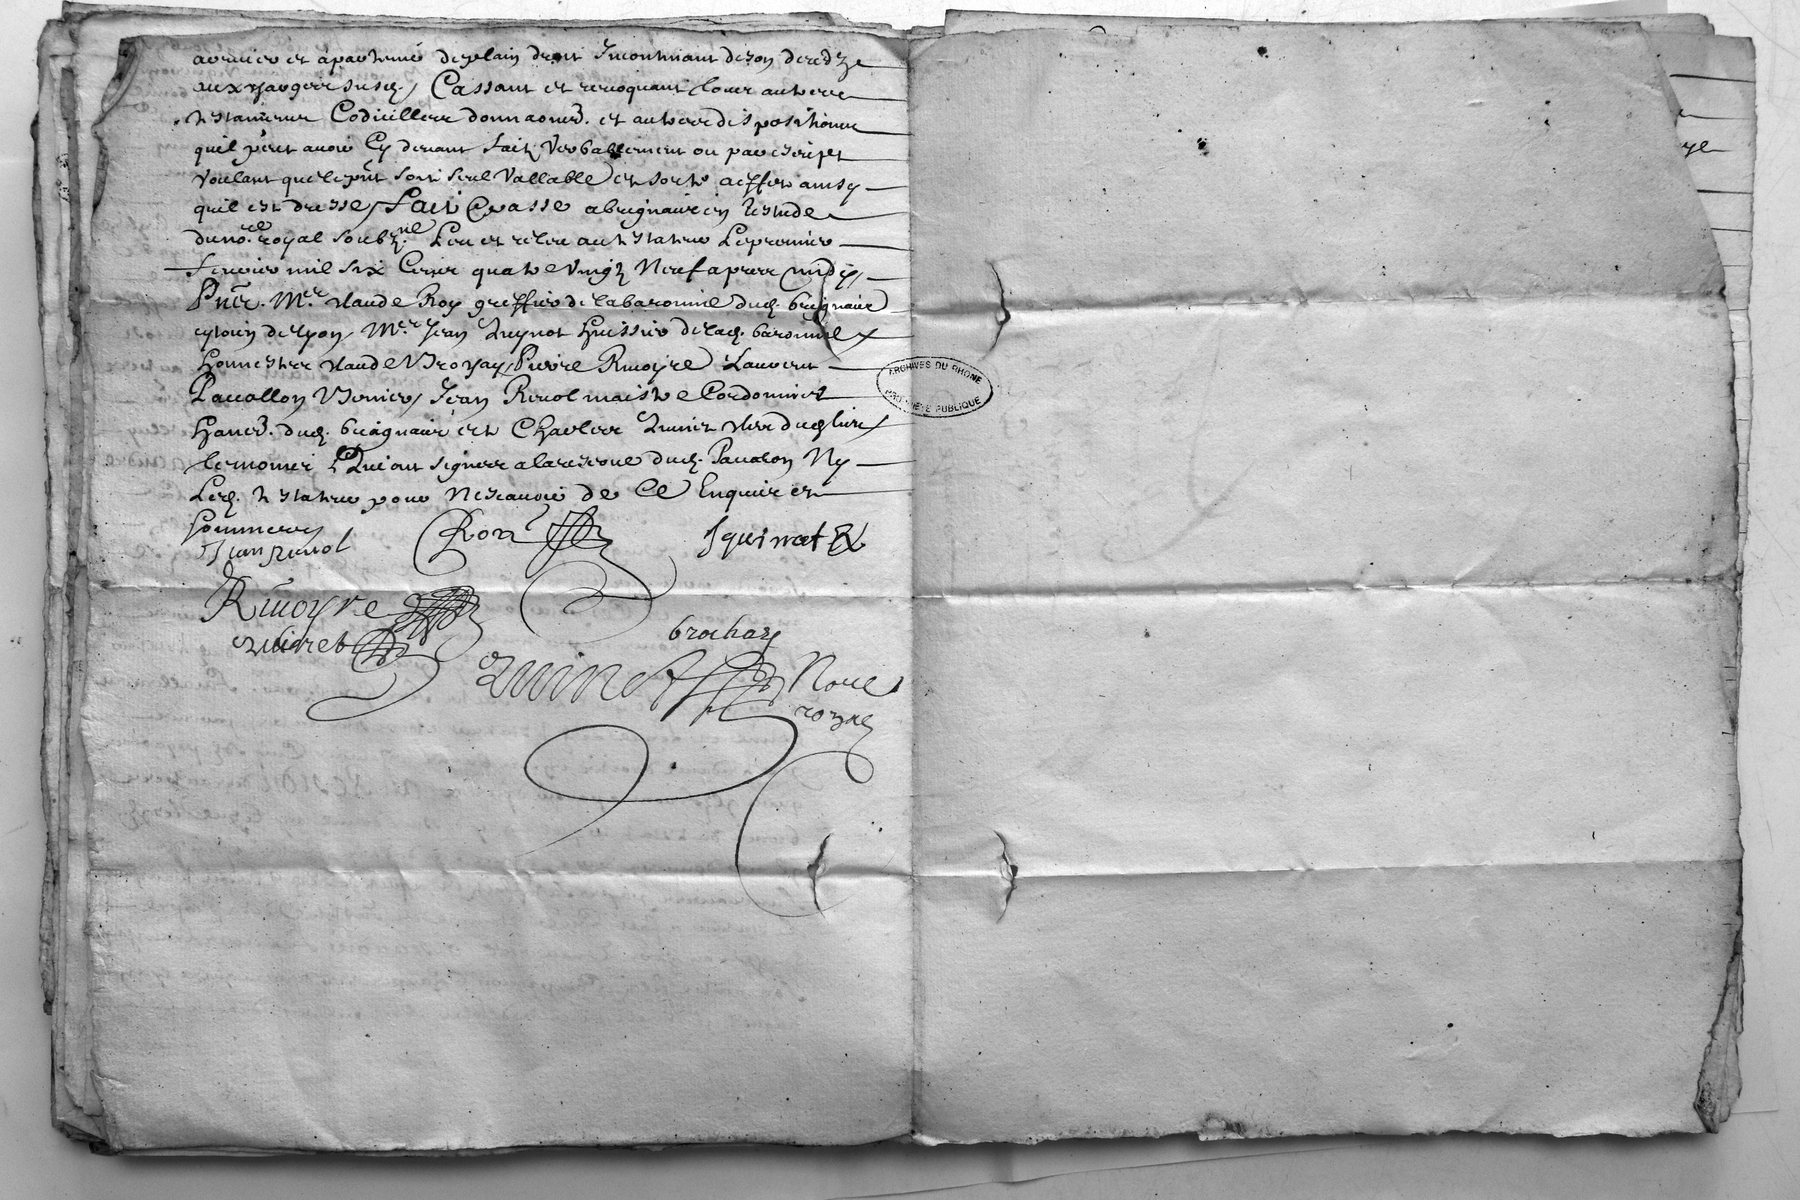 arriver et apartenir de plain droit Incontinant de son deced
aux charges susd. Cassant et revoquant tous autres
testamens Codicilles donnaons. et autres dispositions
quil peut avoir Cy devant fait Verballement ou par escript
Voulant que le pnt soit seul Vallable et sorte a effet ainsy
quil est dresse, Fait Et passe a brignais en lestude
du nore royal soubzne Leu et releu au testateur Le premier
fevrier mil six Cens quatre Vingt Neuf apres midy
Pnts. Mre Claude Roy greffier de la baronnie dud. brignais
cytoien de lyon, Mre Jean Quynot huissier de lad. baronnie
honnestes Claude Pierre Rivoyre Laurens
Pavallon Jean Revol maistre Cordonnier
hans. dud. brignais et Charles Quinet clerc dud lieu
tesmoins Qui ont signes a la reserve dud. Pavalon Ny
Led. testateur pour Ne scavoir de Ce Enquis et
sommes
Jean Revol
Roy
J quinot
Rivoyre
brochay
quinet
Nore
royal
ARCHIVES DU RHONE
PROPRIÉTÉ PUBLIQUE